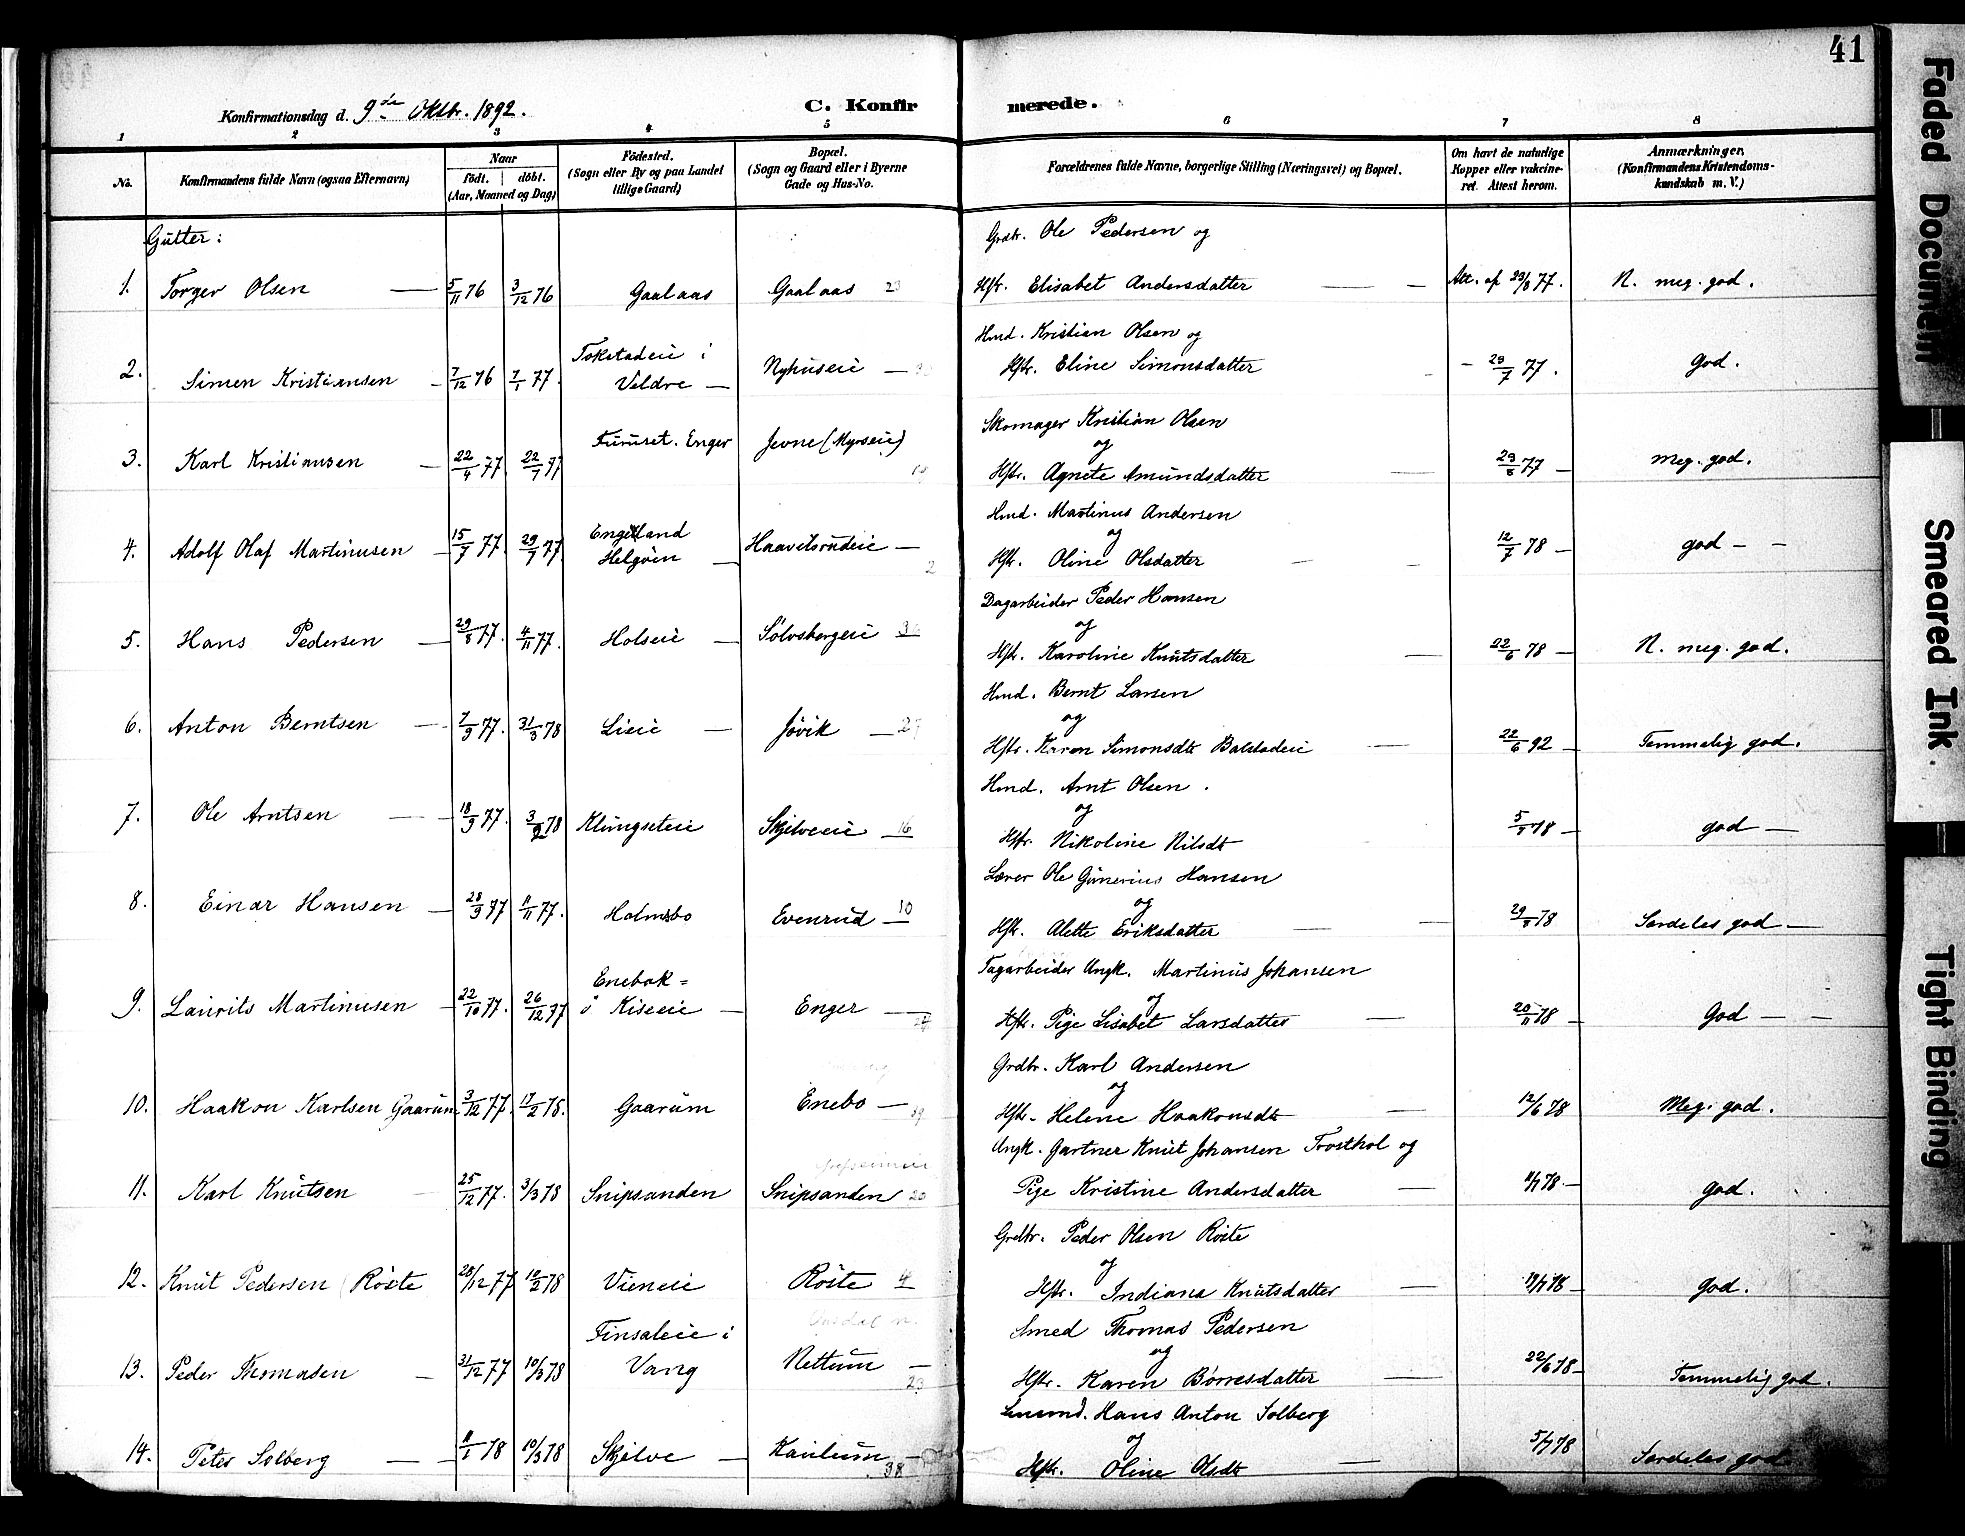 41
Konfirmationsdag d. 9de Oktbr. 1892.
C. Konfirmerede.
1 2 3 4 5 6 7 8
No.
Konfirmandens fulde Navn (ogsaa Efternavn)
Naar
født. døbt.
(Aar, Maaned og Dag)
Fødested.
(Sogn eller By og paa Landet
tillige Gaard)
Bopæl.
(Sogn og Gaard eller i Byerne
Gade og Hus-No.
Forældrenes fulde Navne, borgerlige Stilling (Næringsvei) og Bopæl.
Om havt de naturlige
Kopper eller vakcine-
ret. Attest herom.
Anmærkninger,
(Konfirmandens Kristendoms-
kundskab m. V.)
Gutter:
Grdbr. Ole Pedersen og
1. Torger Olsen — 5/11 76 3/12 76 Gaalaas Gaalaas 23 Hstr. Elisabet Andersdatter — Att. af 23/8 77. N. meg. god.
Hmd. Kristian Olsen og
2. Simen Kristiansen — 7/12 76 7/1 77. Tokstadeie i Veldre — Nyhuseie — Hstr. Eline Simonsdatter - 29/7 77. God.
Skomager Kristian Olsen
og
3. Karl Kristiansen — 22/4 77 22/7 77 Furuset. Enger Jevne (Myrseie) Hstr. Agnete Amundsdatter — 29/8 77 — Meg. god.
Hmd. Martinus Andersen
og
4. Adolf Olaf Martinusen — 15/7 77. 29/7 77 Engeland Helgøin — Haavelsrudeie — 2 Hstr. Oline Olsdatter — 12/7 78 — god — —
Dagarbeider Peder Hansen
og
5. Hans Pedersen — 29/8 77. 4/11 77. Holseie — Sølvsbergeie Hstr. Karoline Knutsdatter — 22/6 78 — N. meg. god.
Hmd. Bernt Larsen
og
6. Anton Berntsen — 7/9 77. 31/3 78 Lieie — Jøvik — Hstr. Karen Simonsdt Balstadeie — 22/6 92 — Temmelig god.
Hmd. Arnt Olsen.
og
7. Ole Arntsen — 18/9 77. 3/2 78 Klungseteie Skjelveeie 16 Hstr. Nikoline Nilsdt 78 — god —
Lærer Ole Gunerius Hansen
og
8. Einar Hansen — 28/9 77 11/11 77. Holmsbo Evenrud 10 Hstr. Alette Eriksdatter — 78 Særdeles god —
Dagarbeider Ungk. Martinus Johansen
og
9. Laurits Martinusen — 22/10 77. 26/12 77 Enebak= i Kiseeie — Enger — Hstr. Pige Lisabet Larsdatter — 20/11 78 — God — —
Grdbr. Karl Andersen
og
10. Haakon Karlsen Gaarum 3/12 77. 17/2 78. Gaarum Enebo — 39 Hstr. Helene Haakonsdt — 12/6 78 Meg. god.
Ungk. Gartner Knut Johansen Trosthol og
11. Karl Knutsen 25/12 77. 3/3 78 Snipsanden Snipsanden 20 Pige Kristine Andersdatter — 78 — god.
Grdbr. Peder Olsen Røste
og
12. Knut Pedersen Røste 28/12 77 10/2 78 Vieneie Røste 4 Hstr. Indiana Knutsdatter — 78 — god.
Smed Thomas Pedersen
og
13. Peder Thomasen — 31/12 77 10/3 78 Finsaleie i Vang Nettum — 23 Hstr. Karen Børresdatter — 22/6 78 — Temmelig god.
Hans Anton Solberg
og
14. Peter Solberg — 78 10/3 78 Skjelve — Kaulum — 38 Hstr. Oline Olsdt 5/7 78 Særdeles god
Faded Document
Smeared Ink.
Tight Binding